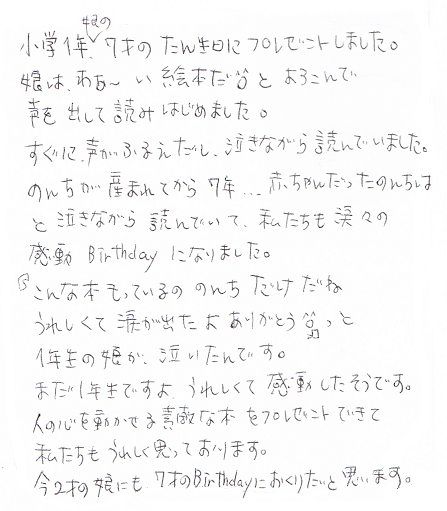 小学1年、娘の7才の たん生日に プレゼントしました。
娘は、わあ〜 い 絵本だ と よろこんで
声を 出して 読み はじめました。
すぐに、声が ふるえだし、泣きながら 読んでいました。
のんちが 産まれてから 7年... 赤ちゃんだったのんちは
と 泣きながら 読んでいて、私たちも 涙々の
感動 Birthday になりました。
こんな本 もっているの のんち だけ だね
うれしくて 涙が出たよ ありがとう っと
1年生の 娘が、泣いたんです。
まだ 1年生ですよ うれしくて 感動したそうです。
人の心を動かせる 素敵な本 をプレゼント できて
私たちも うれしく思っております。
今2才の 娘にも、7才のBirthdayにおくりたいと 思います。